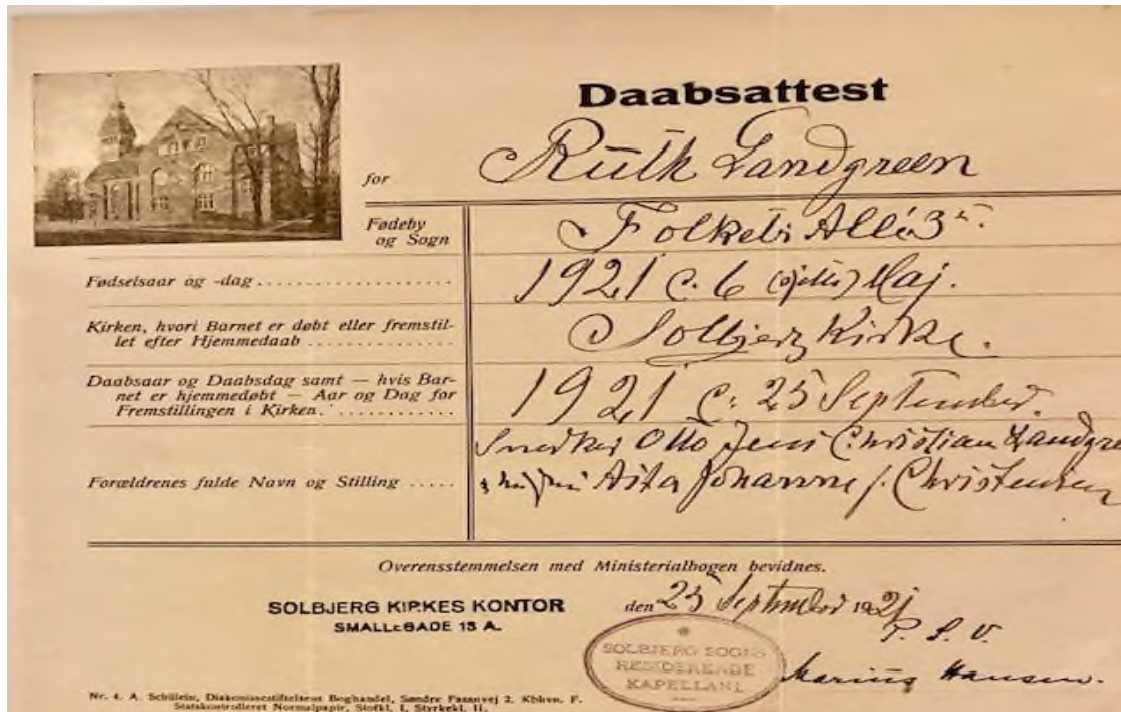 Daabsattest
for Ruth Landgreen
Fødeby
og Sogn
Folkets Allé 3
Fødselsaar og -dag ....................
1921 d. 6 (sjette) Maj.
Kirken, hvori Barnet er døbt eller fremstil-
let efter Hjemmedaab ..............
Solbjerg Kirke.
Daabsaar og Daabsdag samt — hvis Bar-
net er hjemmedøbt — Aar og Dag for
Fremstillingen i Kirken. ............
1921 d. 25 September.
Forældrenes fulde Navn og Stilling .....
Snedker Otto Jens Christian Landgre
Johanne f. Christensen
Overensstemmelsen med Ministerialbogen bevidnes.
SOLBJERG KIRKES KONTOR
SMALLEGADE 13 A.
den 25 September 1921
P. S. V.
SOLBJERG SOGNS
RESIDERENDE
KAPELLANI
Marius Hansen.
Nr. 4. A. Schilein, Diakonissestiftelsens Boghandel, Søndre Fasanvej 2. Kbhvn. F.
Statskontrolleret Normalpapir, Stofkl. I, Styrkekl. II.